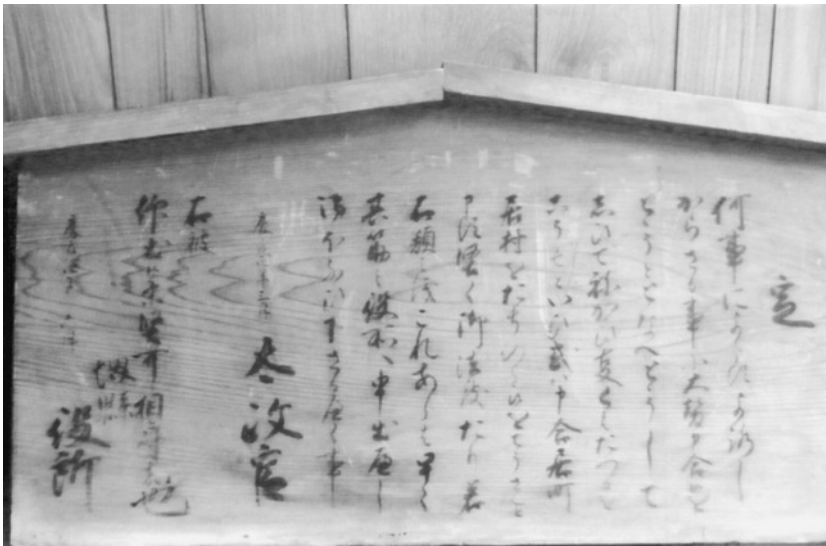 定
何事によらすよろし
からさる事に大勢申合候を
ととうととなへととうして
しいて祢かい事くわたつるを
こうそといひ或ハ申合居町
居村をたちのき候をてうさんと
申す堅く御法度たり若
右類之儀これあらは早々
其筋之役所へ申出へし
御ほうひ下さるへく事
慶應四年三月 太政官
右被
仰出候条堅可相守者也
役所